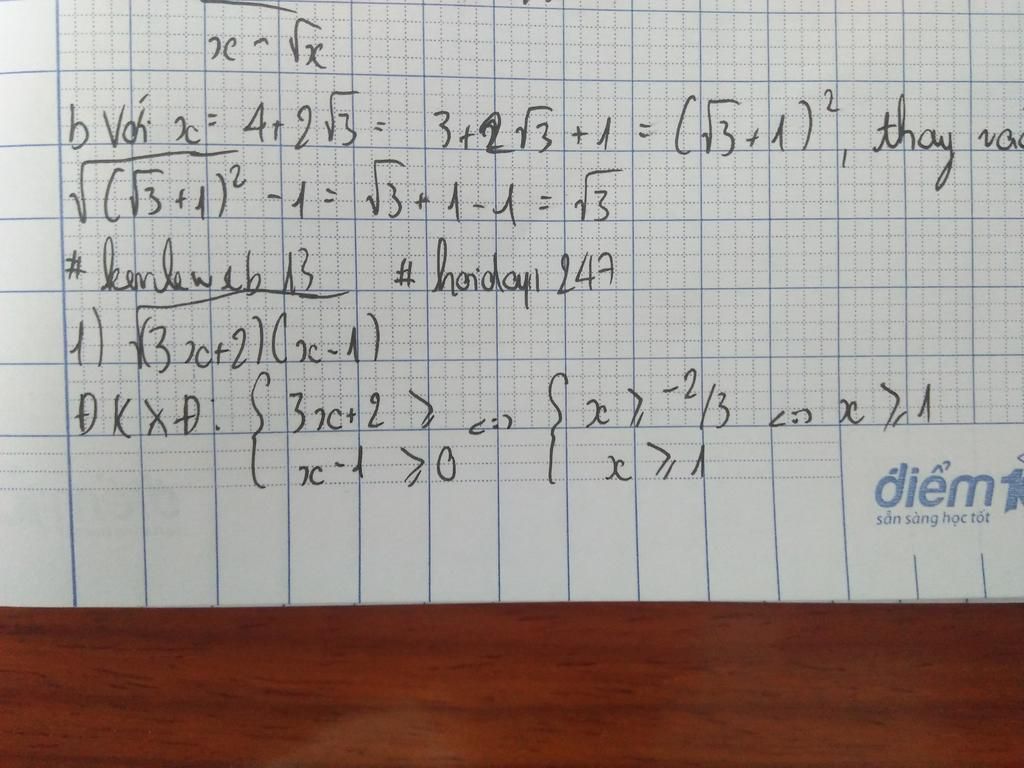 x - √x
b Với x = 4 + 2√3 = 3 + 2√3 + 1 = (√3 + 1)², thay
√(√3 + 1)² - 1 = √3 + 1 - 1 = √3
# 13 # hoidap 247
1) √(3x+2)(x-1)
ĐKXĐ: { 3x+2 ≥ <=> { x ≥ -2/3 <=> x ≥ 1
x - 1 ≥ 0 x ≥ 1
điểm 10
sẵn sàng học tốt